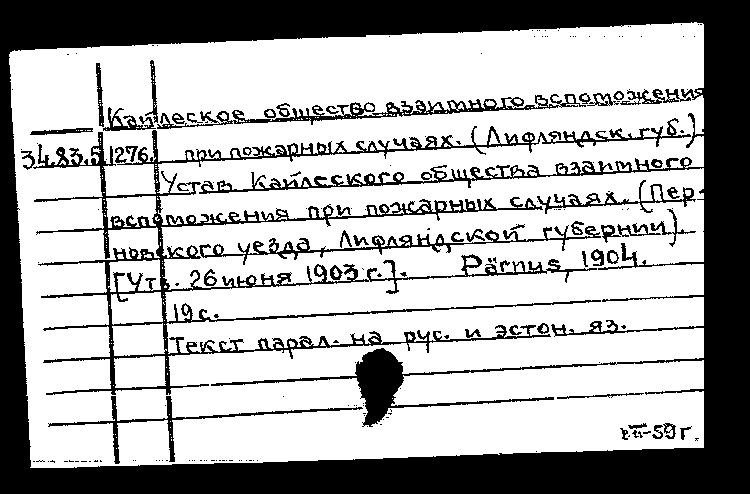 Кайлеское общество взаимного вспоможения
34.83.5 1276. при пожарных случаях. (Лифляндск. губ.).
Устав Кайлеского общества взаимного
вспоможения при пожарных случаях. (Пер-
новского уезда, Лифляндской губернии).
[Утв. 26 июня 1903 г.]. Pärnus, 1904.
19 с.
Текст парал. на рус. и эстон. яз.
59 г.